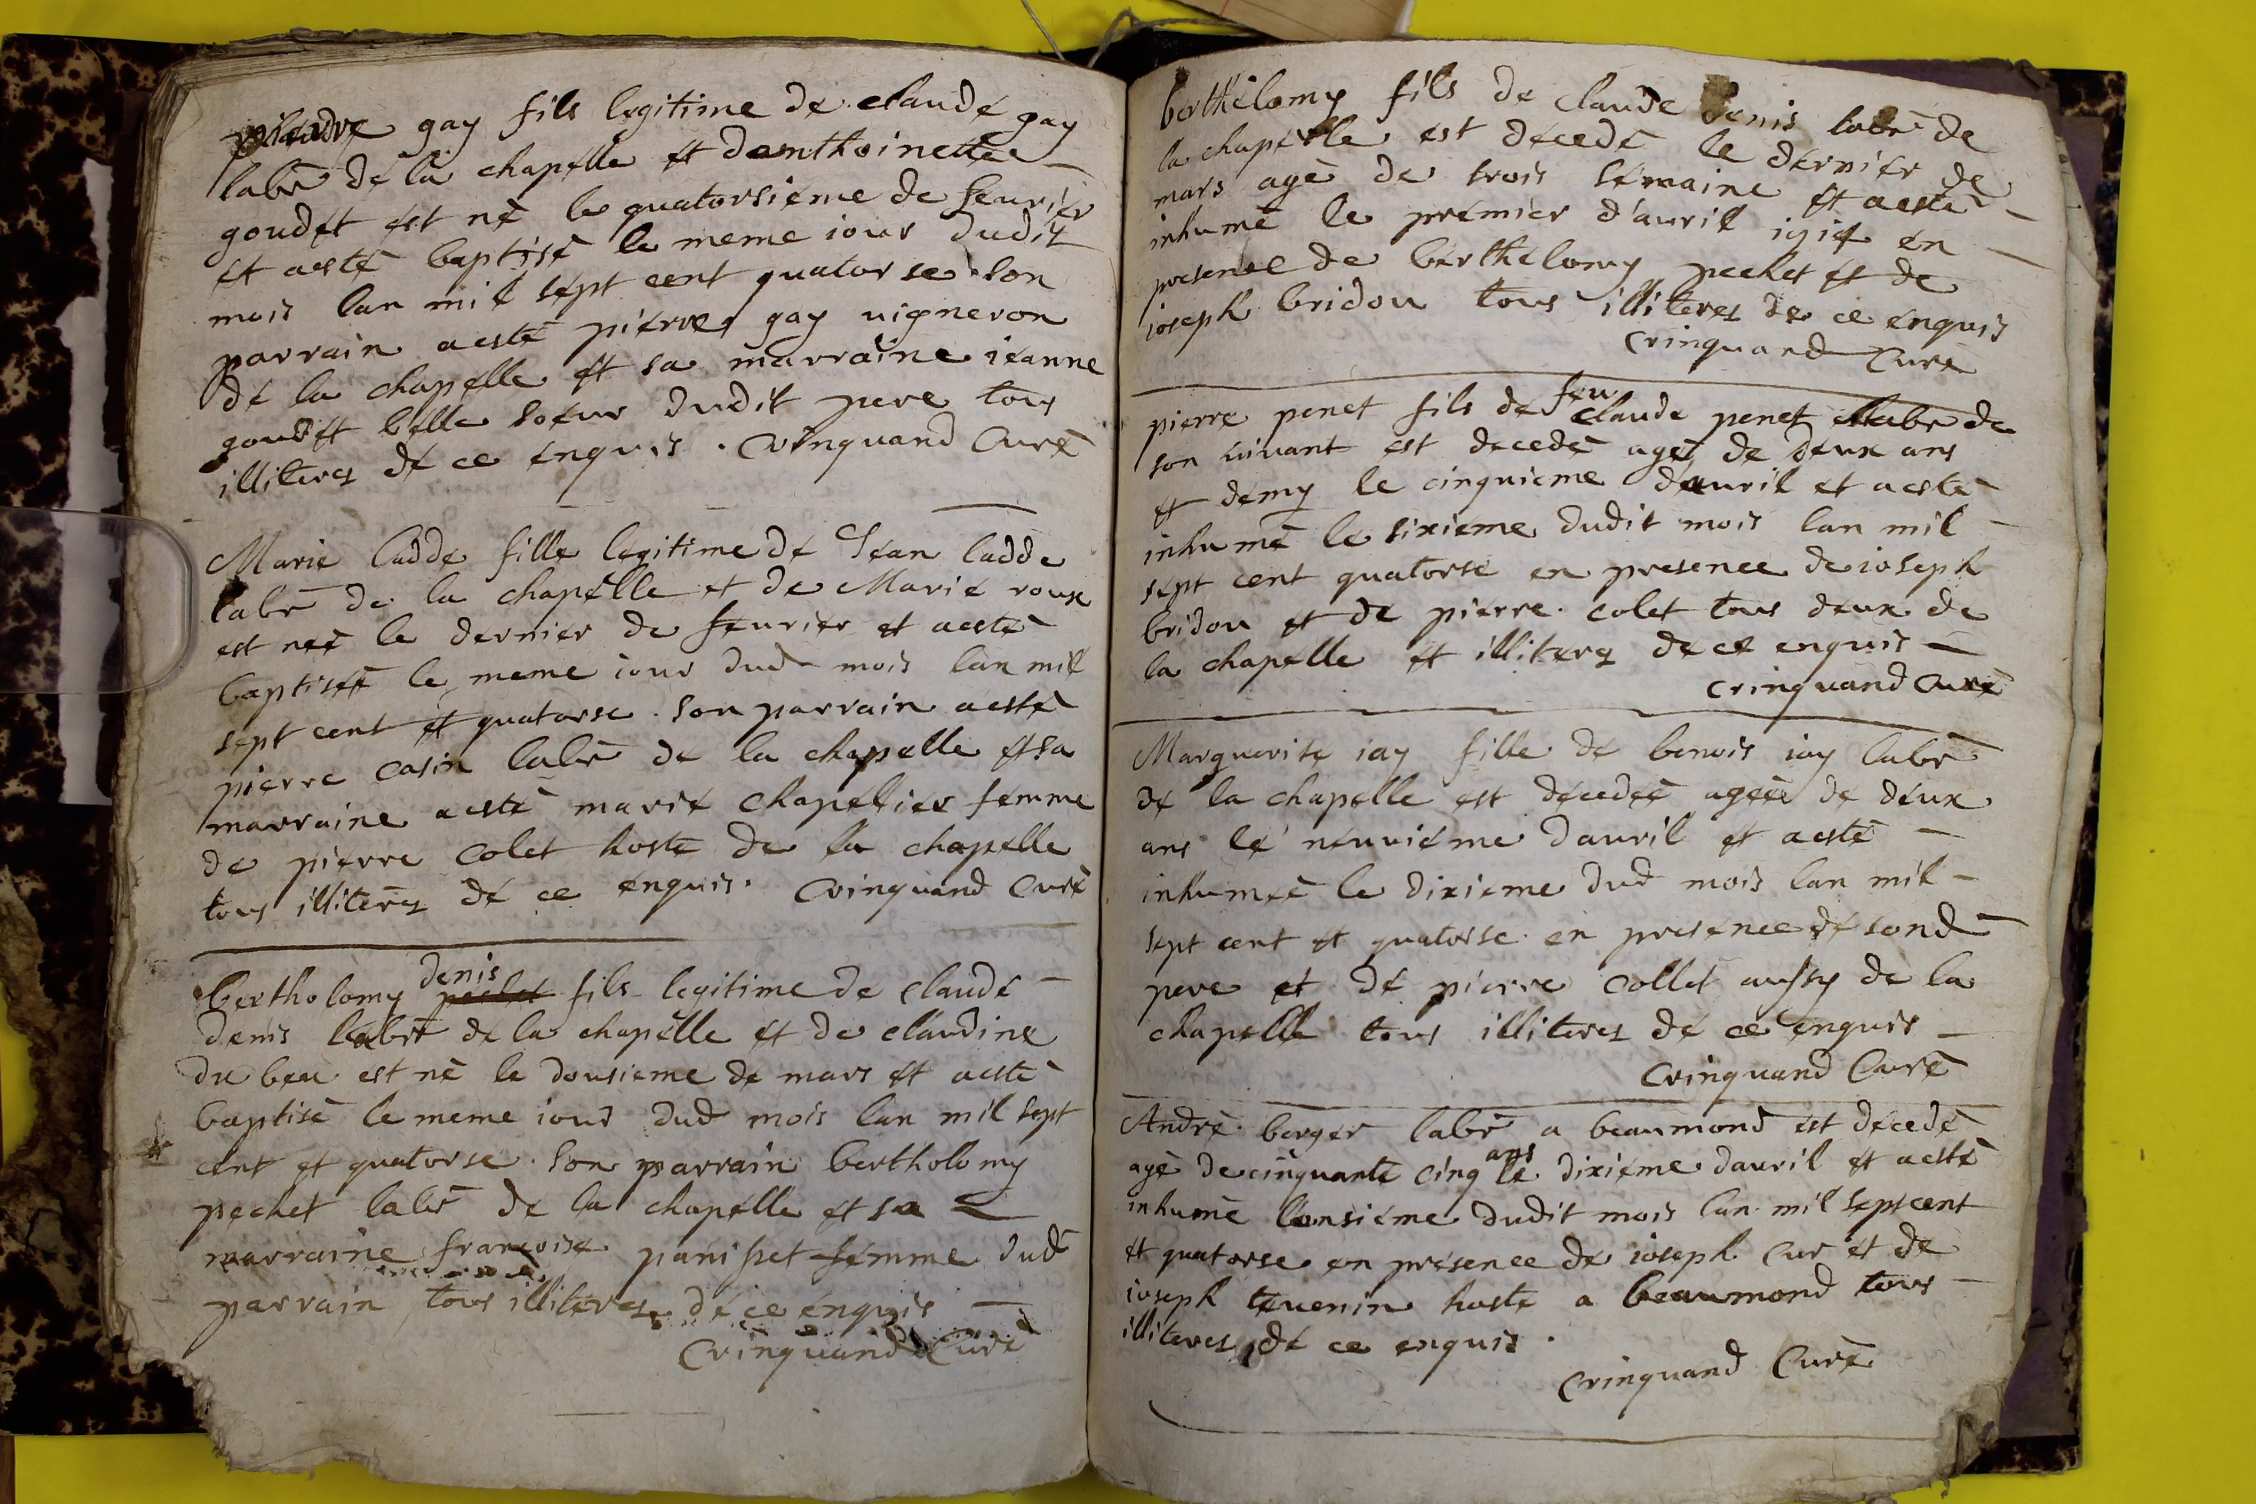 gay fils legitime de claude gay
labr de la chapelle et danthoinette
goudet est né le quatorsiéme de feurier
et acsté baptisé le meme iour dudit
mois lan mil sept cent quatorse son
parrain acsté pierre gay uigneron
de la chapelle et sa marraine ieanne
goudet belle soeur dudit pere tous
illiteres de ce enquis . Crinquand Curé
Marie ladde fille legitime de Jean ladde
labr de la chapelle et de Marie roux
est neé le dernier de feurier et acsté
baptiseé le meme iour dud mois lan mil
sept cent et quatorse . son parrain acsté
pierre casin labr de la chapelle et sa
marraine acsté marie chapelier femme
de pierre colet hoste de la chapelle
tous illiteres de ce enquis . Crinquand Curé
bertholomy denis pechet fils legitime de claude
denis labr de la chapelle et de claudine
du beu est né le dousieme de mars et acsté
baptisé le meme iour dud mois lan mil sept
cent et quatorse . son parrain bertholomy
pechet labr de la chapelle et sa
marraine francoise panisset femme dud
parrain tous illiteres de ce enquis
Crinquand Curé
berthelomy fils de claude denis labr de
la chapelle est décedé le dernier de
mars agé de trois semaine et acsté
inhumé le premier d'auril 1714 en
presence de berthelomy pechet et de
ioseph bridou tous illiteres de ce enquis
Crinquand Curé
pierre penet fils de feu claude penet labr de
son uiuant est decedé agé de deux ans
et demy le cinquieme dauril et acsté
inhumé le sixieme dudit mois lan mil
sept cent quatorse en presence de ioseph
bridou et de pierre . colet tous deux de
la chapelle et illiteres de ce enquis
Crinquand Curé
Marguerite iay fille de benois iay labr
de la chapelle est décedeé ageé de deux
ans le neuuiéme dauril et acsté
inhumeé le dixieme dud mois lan mil
sept cent et quatorse . en presence de sond
pere et de pierre collet aussy de la
chapelle tous illiteres de ce enquis
Crinquand Curé
André . berger labr a beaumond est décedé
agé de cinquante cinq ans le dixiéme dauril et acsté
inhumé lonsiéme dudit mois lan mil sept cent
et quatorse en présence de ioseph Cur et de
ioseph teuenin hoste a beaumond tous
illiteres de ce enquis .
Crinquand Curé